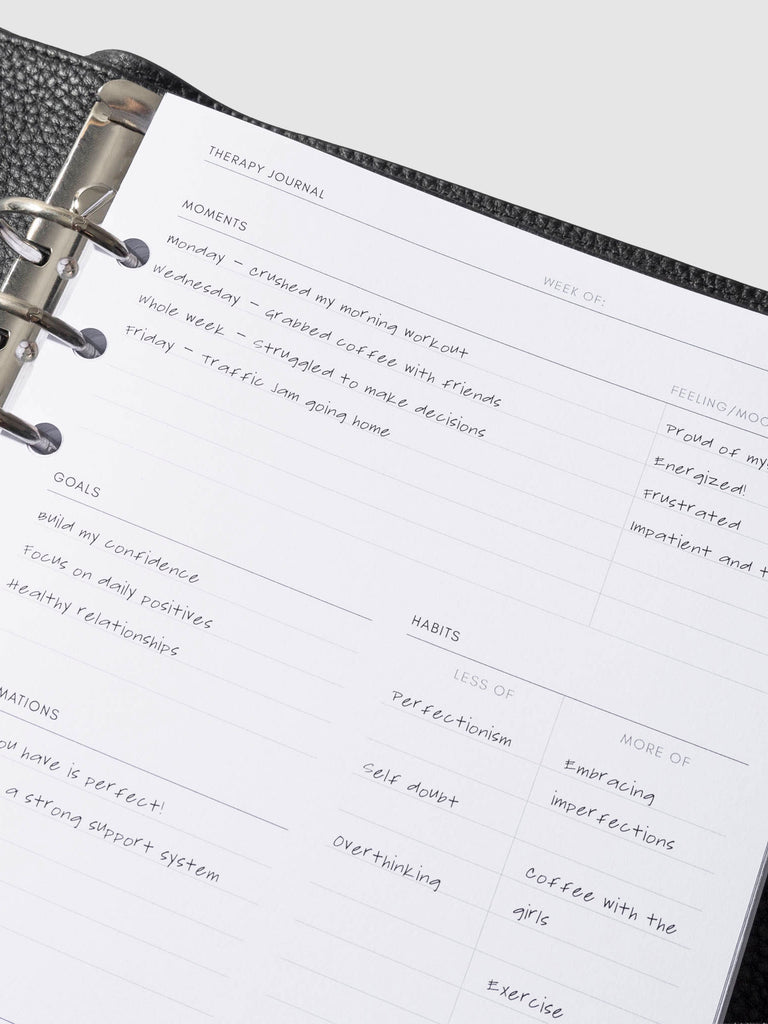 THERAPY JOURNAL
WEEK OF:
MOMENTS
FEELING/
Monday - crushed my morning workout
Proud of
Wednesday - Grabbed coffee with friends
Energized!
Whole week - Struggled to make decisions
Frustrated
Friday - Traffic Jam going home
Impatient and
GOALS
Build my confidence
Focus on daily positives
Healthy relationships
HABITS
LESS OF
MORE OF
Perfectionism
Embracing
imperfections
Self doubt
Coffee with the
girls
Overthinking
Exercise
have is perfect!
a strong support system